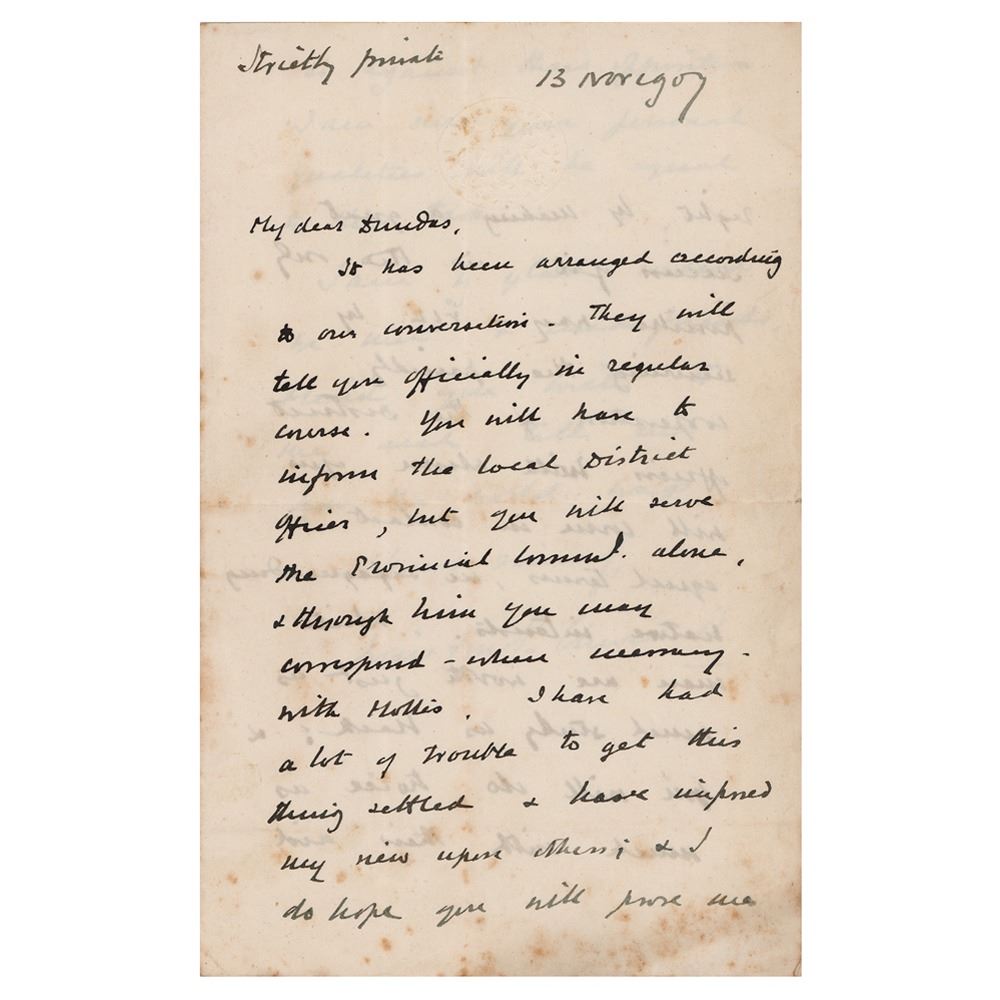 Strictly private
13 Nov 1907
My dear Dundas,
It has been arranged according
to our conversation. They will
tell you officially in regular
course. You will have to
inform the local District
Officer, but you will serve
the Provincial Commr. alone,
& through him you may
correspond - where necessary -
with Hollis. I have had
a lot of trouble to get this
thing settled & have imposed
my view upon others; & I
do hope you will prove me